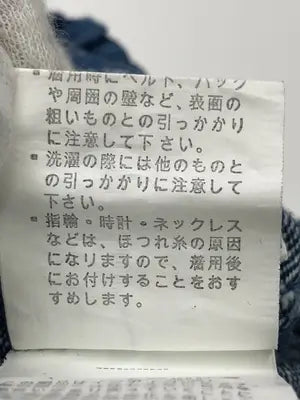 ・着用時にベルト、バッグ
や周囲の壁など、表面の
粗いものとの引っかかり
に注意して下さい。
・洗濯の際には他のものと
の引っかかりに注意して
下さい。
・指輪・時計・ネックレス
などは、ほつれ糸の原因
になりますので、着用後
にお付けすることをおす
すめします。